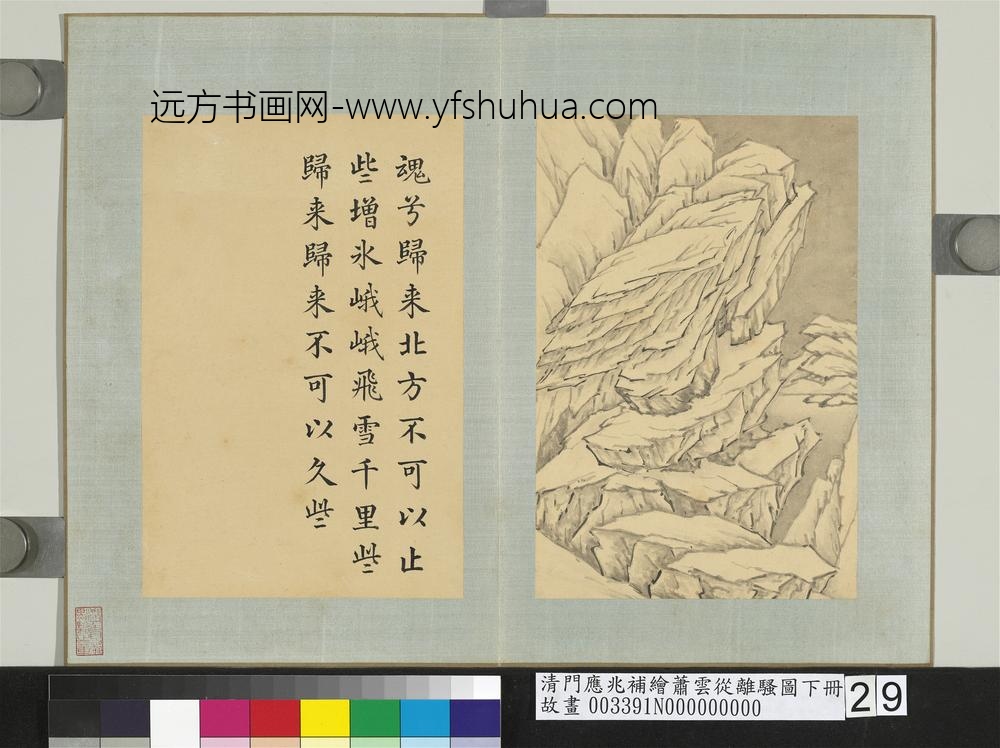 远方书画网-www.yfshuhua.com
魂兮歸来北方不可以止
些增氷峨峨飛雪千里些
歸来歸来不可以久些
清門應兆補繪蕭雲從離騷圖下冊
故畫 003391N000000000
29